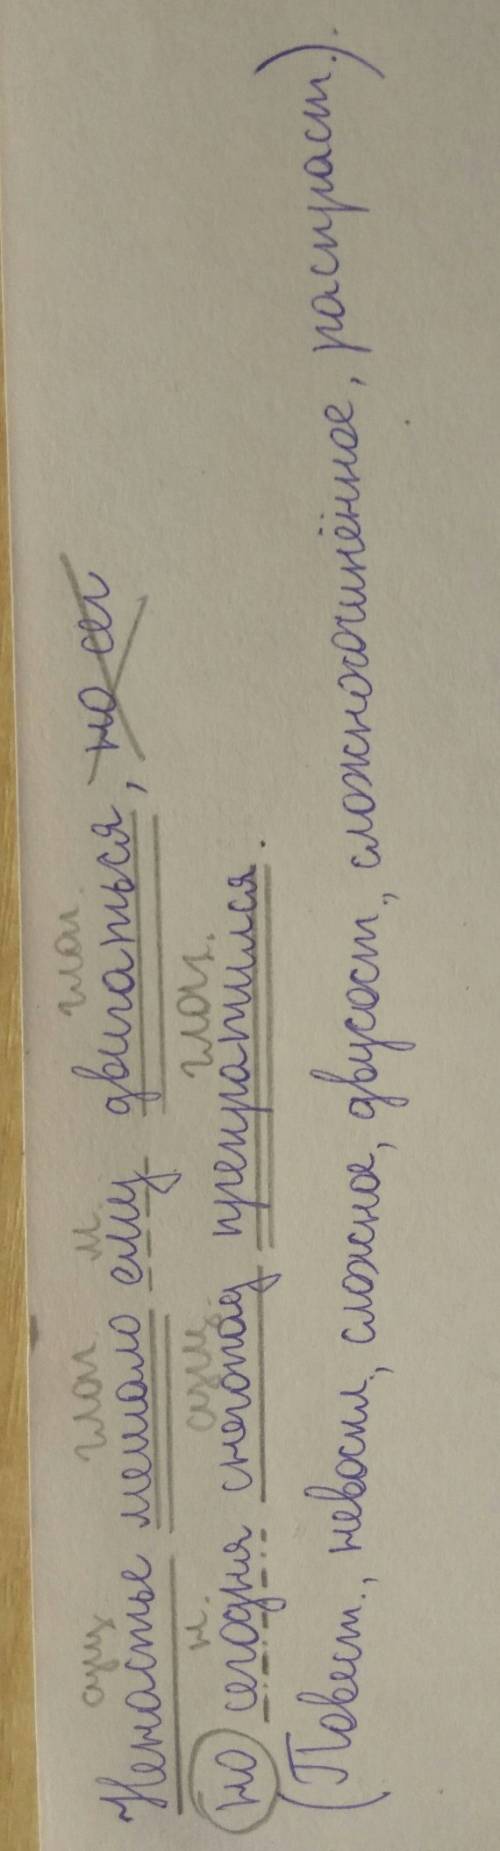 сущ. глаг. м. глаг.
Ненастье мешало ему двигаться, но сег
н. сущ. глаг.
но сегодня снегопад прекратился.
(Повест., невоскл., сложное, двусост., сложносочинённое, распраст.).